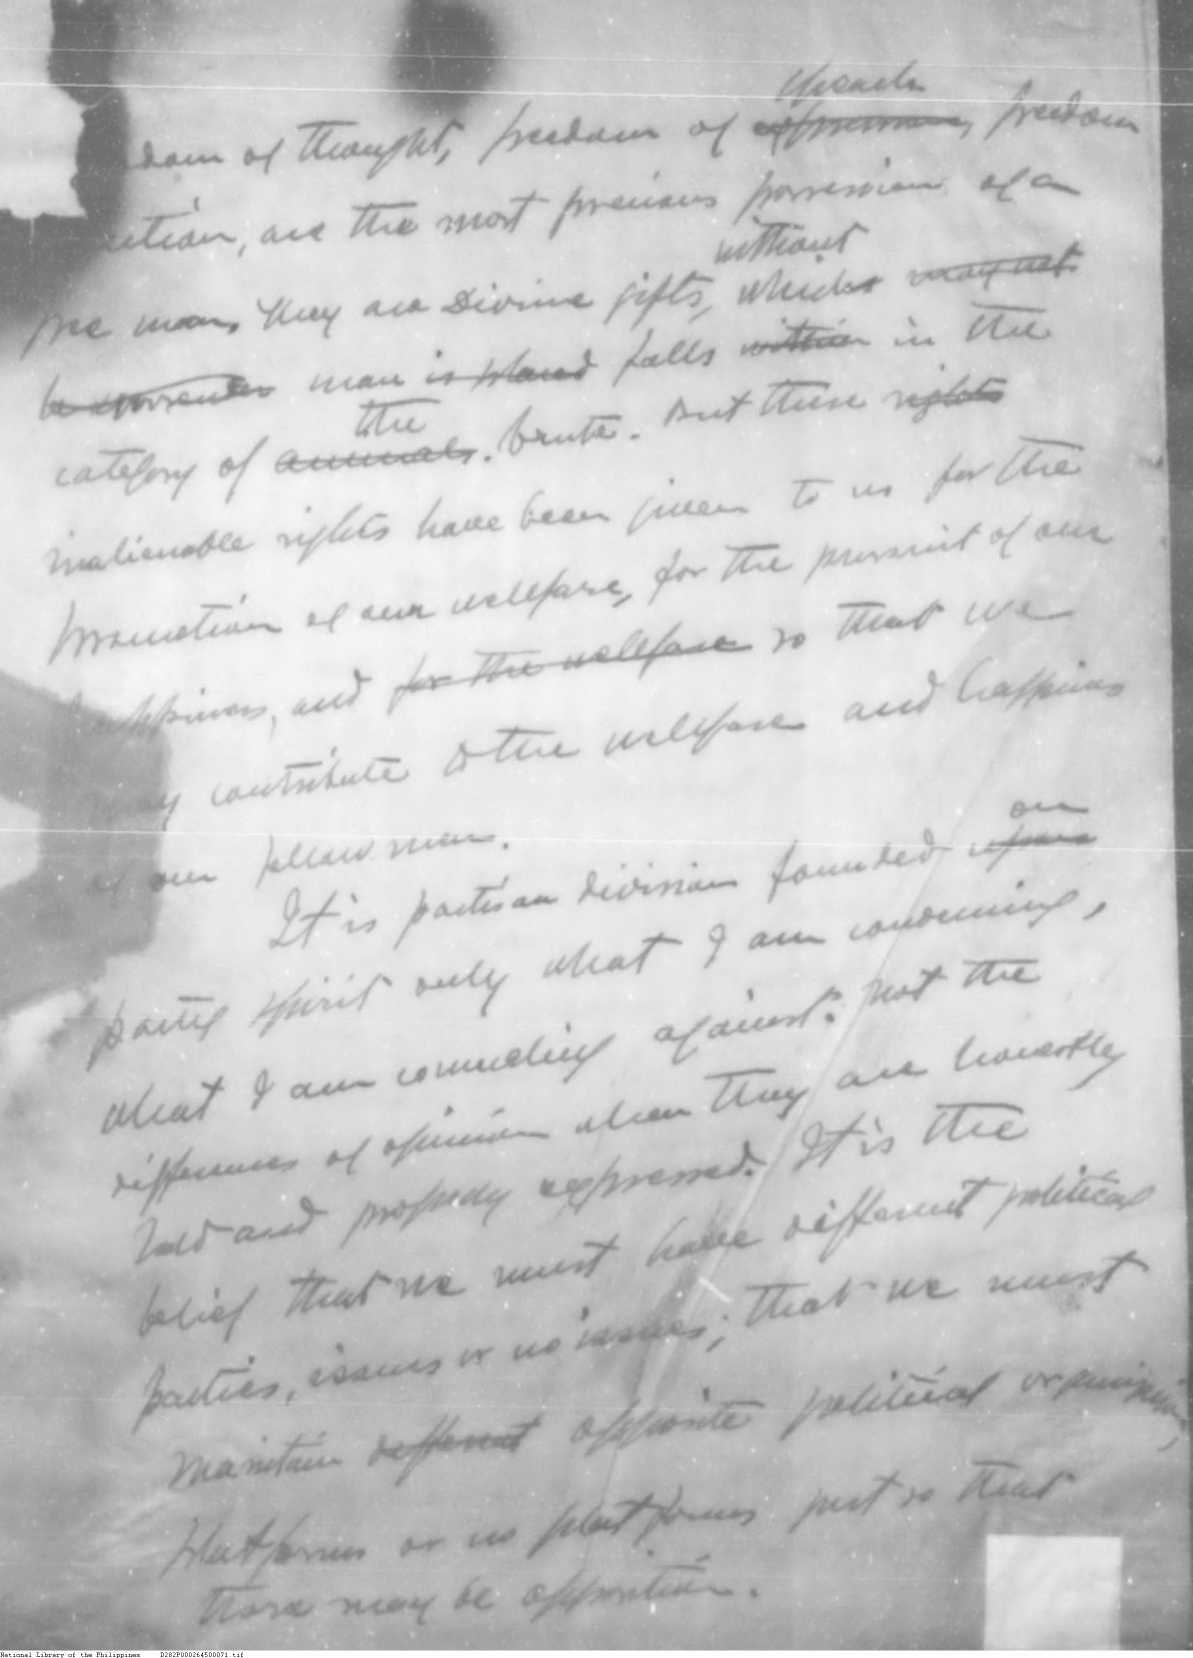 speech
dom of thought, freedom of expression, freedom
action, are the most precious possession of a
without
free man. They are Divine gifts, which may not
be surrender man is placed falls within in the
the
category of animals. brute. But these rights
inalienable rights have been given to us for the
promotion of our welfare, for the pursuit of our
happiness, and for the welfare so that we
may contribute to the welfare and happiness
of our fellow men.
on
It is partisan division founded upon
party spirit only what I am condemning,
what I am counseling against: not the
differences of opinion when they are honestly
held and properly expressed. It is the
belief that we must have different political
parties, issues or no issues; that we must
maintain different opposite political organizations,
platforms or no platforms just so that
there may be opposition.
National Library of the Philippines D282P000264500071.tif